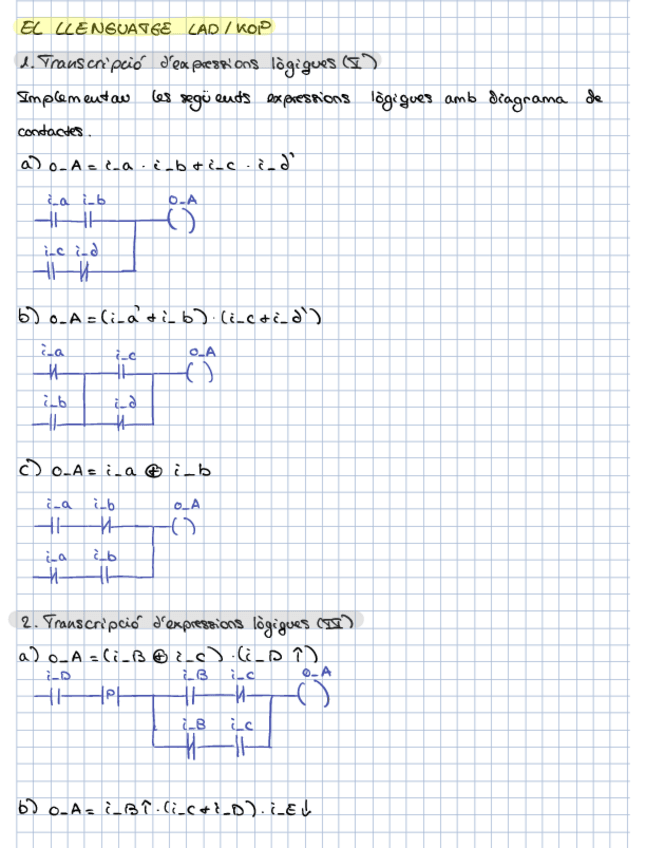 EL LLENGUATGE LAD/KOP
1. Transcripció d'expressions lògiques (I)
Implementau les següents expressions lògiques amb diagrama de
contactes.
a) O_A = i_a · i_b + i_c · i_d'
i_a i_b O_A
( )
i_c i_d
b) O_A = (i_a' + i_b) · (i_c + i_d')
i_a i_c O_A
( )
i_b i_d
c) O_A = i_a ⊕ i_b
i_a i_b O_A
( )
i_a i_b
2. Transcripció d'expressions lògiques (II)
a) O_A = (i_B ⊕ i_C) · (i_D ↑)
i_D i_B i_C O_A
P ( )
i_B i_C
b) O_A = i_B↑ · (i_C + i_D) · i_E↓